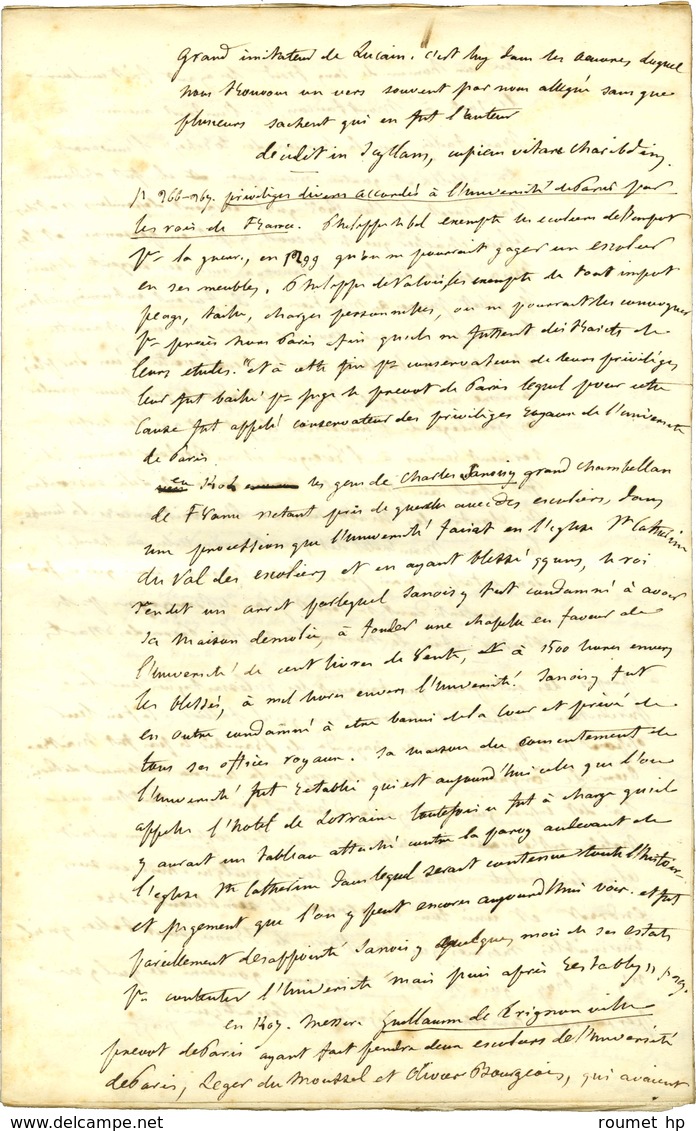 Grand imitateur de Lucain. c'est luy dans les oeuvres duquel
nous trouvons un vers souvent par nous allegué sans que
plusieurs sachent qui en fut l'auteur
decidit in Scyllam, cupiens vitare Charibdim.
p 266-267. privileges divers accordés à l'Université de Paris par
les rois de France. Philippe le bel exempte les ecoliers de l'impot
pr la guerre, en 1299 qu'on ne pourrait gager un escolier
en ses meubles. Philippe de Valois les exempte de tout impot
peage, taille, charges personnelles, on ne pourrait les convoquer
pr procès hors Paris afin qu'ils ne fussent distraicts de
leurs etudes. "et à cette fin pr conservateur de leurs privilèges
leur fut baillé pr juge le prevot de Paris lequel pour cette
cause fut appelé conservateur des privilèges royaux de l'Université
de Paris
en 1404 les gens de Charles Sanoisy grand chambellan
de France s'etant pris de querelle avec des escoliers, dans
une procession que l'Université faisait en l'eglise Ste Catherine
du Val des escoliers et en ayant blessé qques uns, le roi
rendit un arret par lequel Sanoisy fut condamné à avoir
sa maison demolie, à fonder une chapelle en faveur de
l'Université de cent livres de rente, à 1500 livres envers
les blessés, à mil livres envers l'Université. Sanoisy fut
en outre condamné à etre banni de la cour et privé de
tous ses offices royaux. Sa maison du consentement de
l'Université fut retablie qui est aujourd'hui celle que l'on
appelle l'hotel de Lorraine toutefois ce fut à charge qu'il
y aurait un tableau attaché contre la paroy au devant de
l'eglise Ste Catherine dans lequel serait contenue toute l'histoire
et jugement que l'on y peut encores aujourd'hui voir. et fut
pareillement desappointé Sanoisy quelques mois de ses estats
pr contenter l'Université mais puis après restably
en 1407. messire Guillaume de Trignonville
prevot de Paris ayant fait pendre deux escoliers de l'Université
de Paris, Leger du Moussel et Olivier Bourgeois, qui avaient
roumet hp